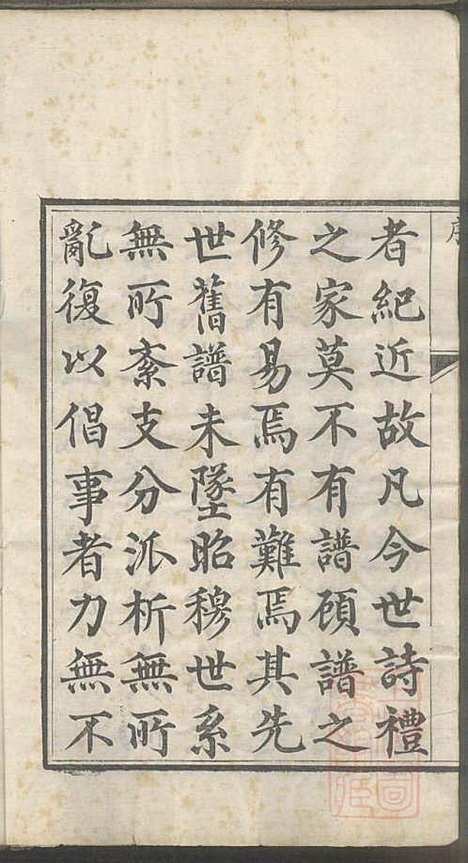 序
者紀近故凡今世詩禮
之家莫不有譜顧譜之
修有易焉有難焉其先
世舊譜未墜昭穆世系
無所紊支分派析無所
亂復以倡事者力無不